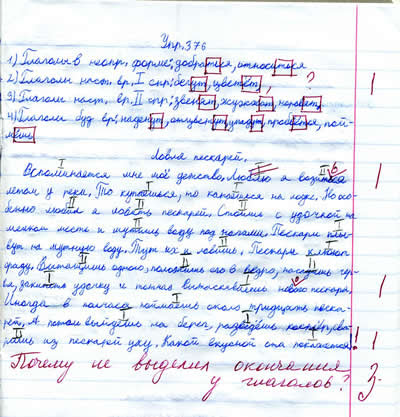 Упр. 376
1) Глаголы в неопр. форме: добраться, относиться
2) Глаголы наст. вр. I спр: бегут, цветёт, ?
3) Глаголы наст. вр. II спр: звенят, жужжат, норовят,
4) Глаголы буд. вр: наденут, отцветут, упадут, пой-
мёшь.
Ловля пескарей.
Вспоминается мне моё детство. Люблю я возиться
летом у реки. То купаешься, то катаешься на лодке. Но осо-
бенно любил я ловить пескарей. Стоишь с удочкой на
мелком месте и мутишь воду под ногами. Пескари плы-
вут на мутную воду. Тут их и ловишь. Пескарь клюнет
сразу. Вытащишь одного, положишь его в ведро, насадишь чер-
вя, закинешь удочку и тотчас вытаскиваешь нового пескаря.
Иногда в полчаса поймаешь около тридцати песка-
рей. А потом выйдешь на берег, разведёшь костёр,
уху. Какой вкусной она покажется!
Почему не выделил окончания
у глаголов?
1
1
1
1
3